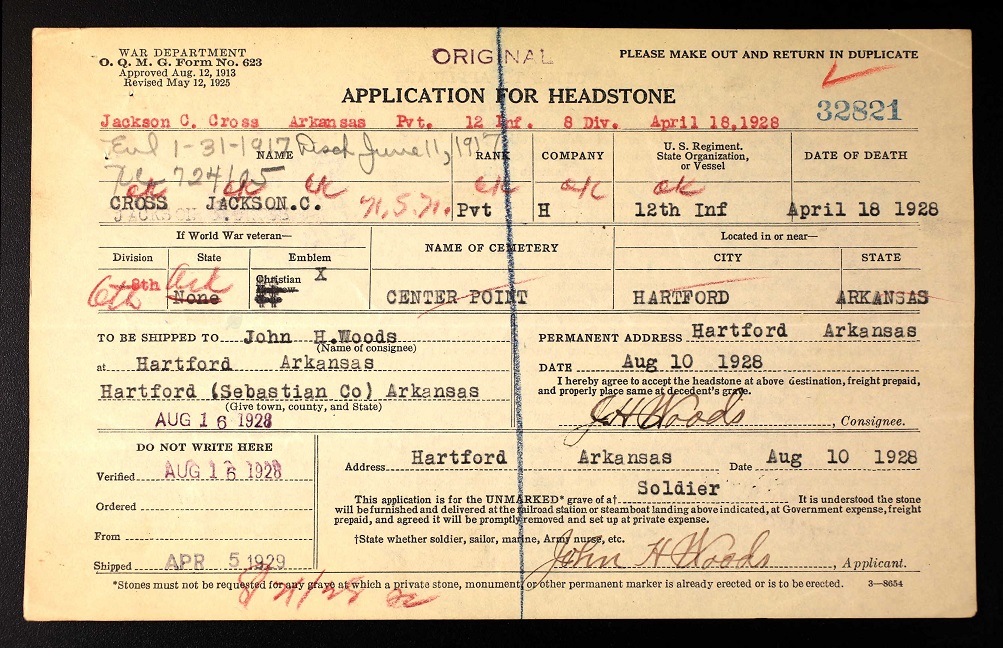 WAR DEPARTMENT
O. Q. M. G. Form No. 623
Approved Aug. 12, 1913
Revised May 12, 1925
ORIGINAL
PLEASE MAKE OUT AND RETURN IN DUPLICATE
APPLICATION FOR HEADSTONE
32821
Jackson C. Cross Arkansas Pvt. 12 Inf. 8 Div. April 18,1928
Enl 1-31-1917 Disch June 11, 1917
NAME RANK COMPANY U. S. Regiment. State Organization, or Vessel DATE OF DEATH
ok ok ok ok ok ok
CROSS JACKSON.C. Pvt H 12th Inf April 18 1928
If World War veteran—
NAME OF CEMETERY
Located in or near—
Division State Emblem CITY STATE
6th 8th Ark None Christian X
CENTER POINT HARTFORD ARKANSAS
TO BE SHIPPED TO John H.Woods
(Name of consignee)
at Hartford Arkansas
Hartford (Sebastian Co) Arkansas
(Give town, county, and State)
AUG 16 1928
PERMANENT ADDRESS Hartford Arkansas
DATE Aug 10 1928
I hereby agree to accept the headstone at above destination, freight prepaid,
and properly place same at decedent's grave.
J H Woods, Consignee.
DO NOT WRITE HERE
Verified AUG 16 1928
Ordered
From
Shipped APR 5 1929
Address Hartford Arkansas Date Aug 10 1928
This application is for the UNMARKED* grave of a† Soldier It is understood the stone
will be furnished and delivered at the railroad station or steamboat landing above indicated, at Government expense, freight
prepaid, and agreed it will be promptly removed and set up at private expense.
†State whether soldier, sailor, marine, Army nurse, etc.
John H Woods, Applicant.
*Stones must not be requested for any grave at which a private stone, monument, or other permanent marker is already erected or is to be erected. 3—8654